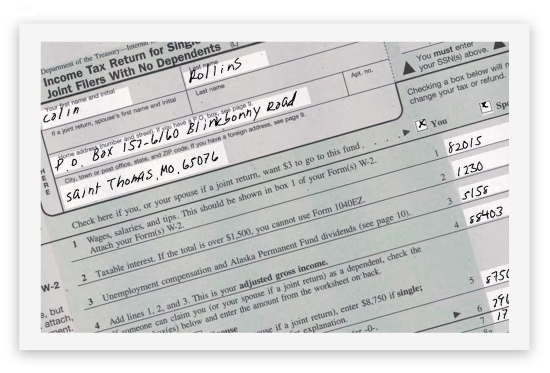 Department of the Treasury—Internal
Income Tax Return for Single
Joint Filers With No Dependents (L)
Your first name and initial
Last name
Colin
Rollins
If a joint return, spouse's first name and initial
Last name
Home address (number and street). If you have a P.O. box, see page 9.
Apt. no.
P.O. Box 157-6160 Blinkbonny Road
City, town or post office, state, and ZIP code. If you have a foreign address, see page 9.
Saint Thomas, MO, 65076
HERE
You must enter
your SSN(s) above.
Checking a box below will n
change your tax or refund.
Check here if you, or your spouse if a joint return, want $3 to go to this fund
You
Spo
1 Wages, salaries, and tips. This should be shown in box 1 of your Form(s) W-2.
Attach your Form(s) W-2.
1 82015
2 Taxable interest. If the total is over $1,500, you cannot use Form 1040EZ.
2 1230
3 Unemployment compensation and Alaska Permanent Fund dividends (see page 10).
3 5158
4 Add lines 1, 2, and 3. This is your adjusted gross income.
4 88403
W-2
, but
attach,
ment.
someone can claim you (or your spouse if a joint return) as a dependent, check the
box(es) below and enter the amount from the worksheet on back.
use if a joint return), enter $8,750 if single;
explanation.
5 8750
6
7
8a